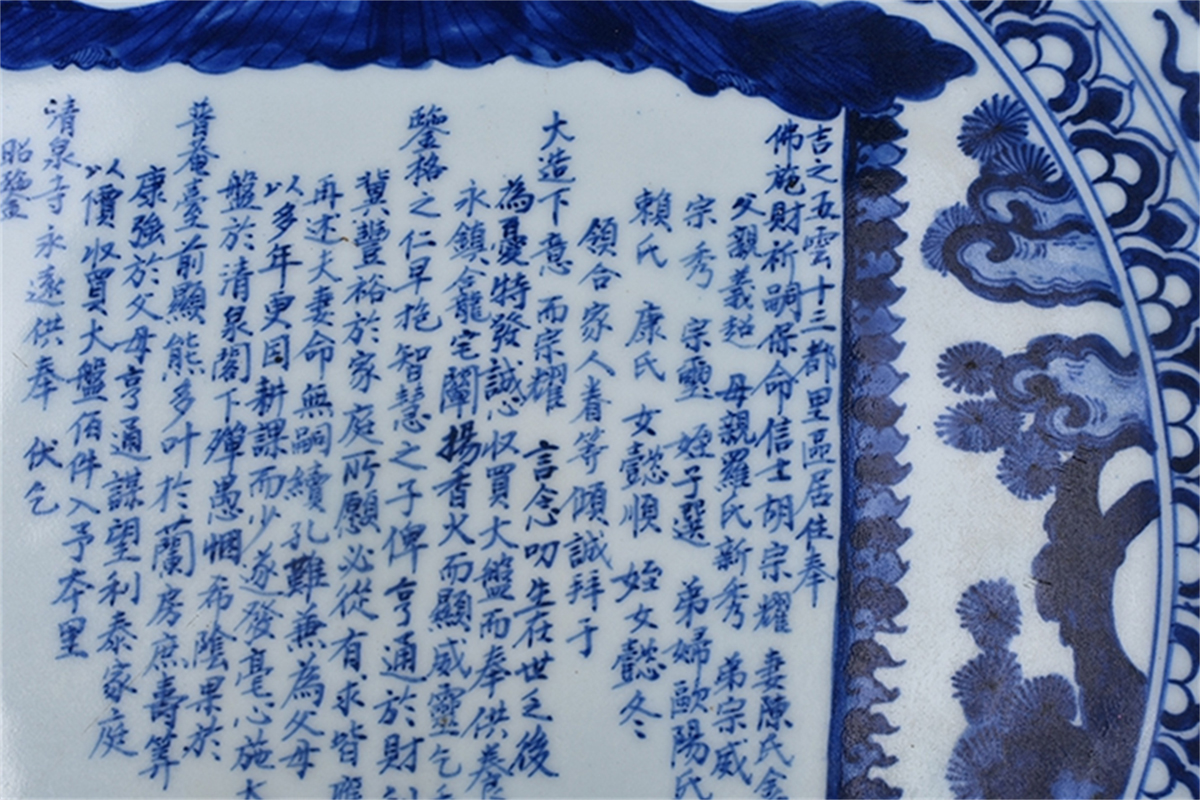 吉之五雲十三都里區居住奉
佛施財祈嗣保命信士胡宗耀 妻陳氏金
父親義超 母親羅氏新秀 弟宗威
宗秀 宗靈 姪子選 弟婦歐陽氏
賴氏 康氏 女懿順 姪女懿冬
領合家人眷等傾誠拜于
大造下意 而宗耀 言念叨生在世之後
為憂特發誠心收買大盤而奉供養
永鎮龕宅闡揚香火而顯威靈乞
鑒格之仁早抱智慧之子俾亨通於財利
冀豐裕於家庭所願必從有求皆
再述夫妻命無嗣續孔難兼為父母
以多年更因耕課而少遂發毫心施大
盤於清泉閣下殫愚悃希陰果於
普菴臺前顯熊多叶於蘭房庶壽筭
康強於父母亨通謀望利泰家庭
以價收買大盤佰件入予本里
清泉寺永遠供奉 伏乞
昭鑒